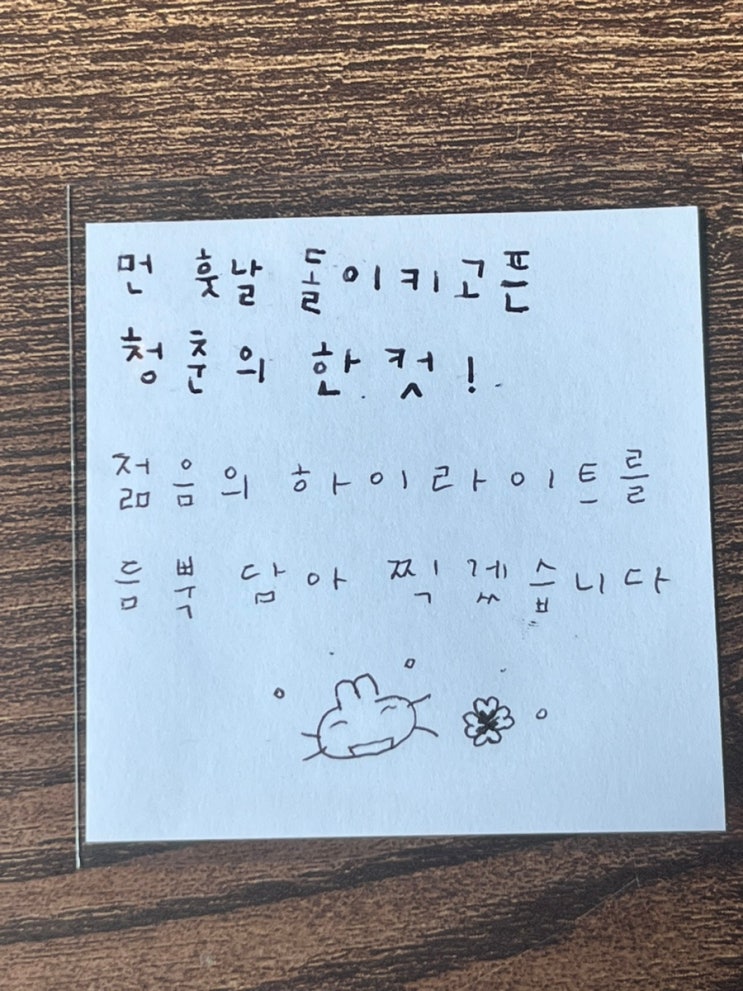 먼 훗날 돌이키고픈
청춘의 한 컷!
젊음의 하이라이트를
듬뿍 담아 찍겠습니다